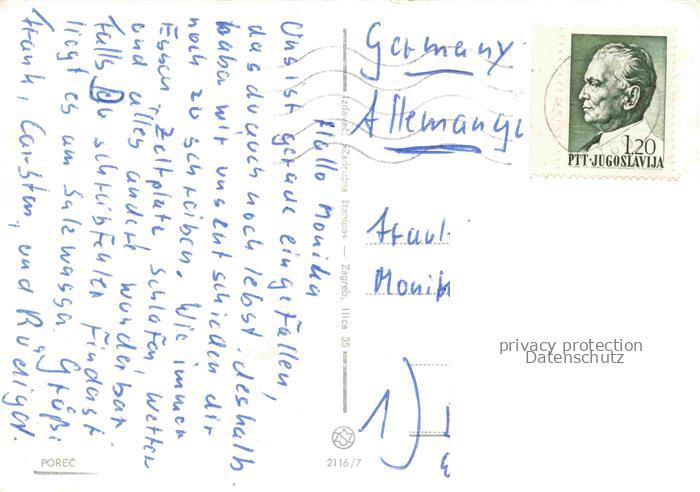 Hallo Monika
Uns ist gerade eingefallen,
das du auch noch lebst. deshalb
haba wir uns entschieden dir
noch zu schreiben. Wie immer
Essen, Zeltplatz schlafen, Wetter
und alles andere wunderbar
Falls Du schreibfehler findast
liegt es am Salzwassa. Grüße
Frank, Carsten, und Ruediger.
POREČ
Izdavač: »Zadružna štampa« — Zagreb, Ilica 35
2116/7
Germany
Allemangne
1,20
PTT·JUGOSLAVIJA
Fraul
Monik
1)
privacy protection
Datenschutz